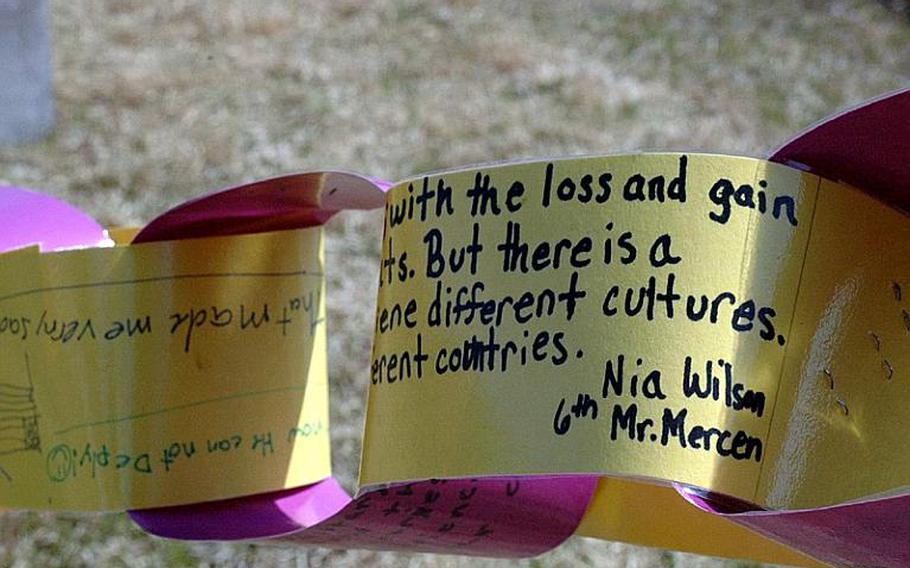 with the loss and gain
ts. But there is a
ene different cultures.
erent countries.
Nia Wilson
6th Mr. Mercen
That made me very sad
now He can not Deploy!